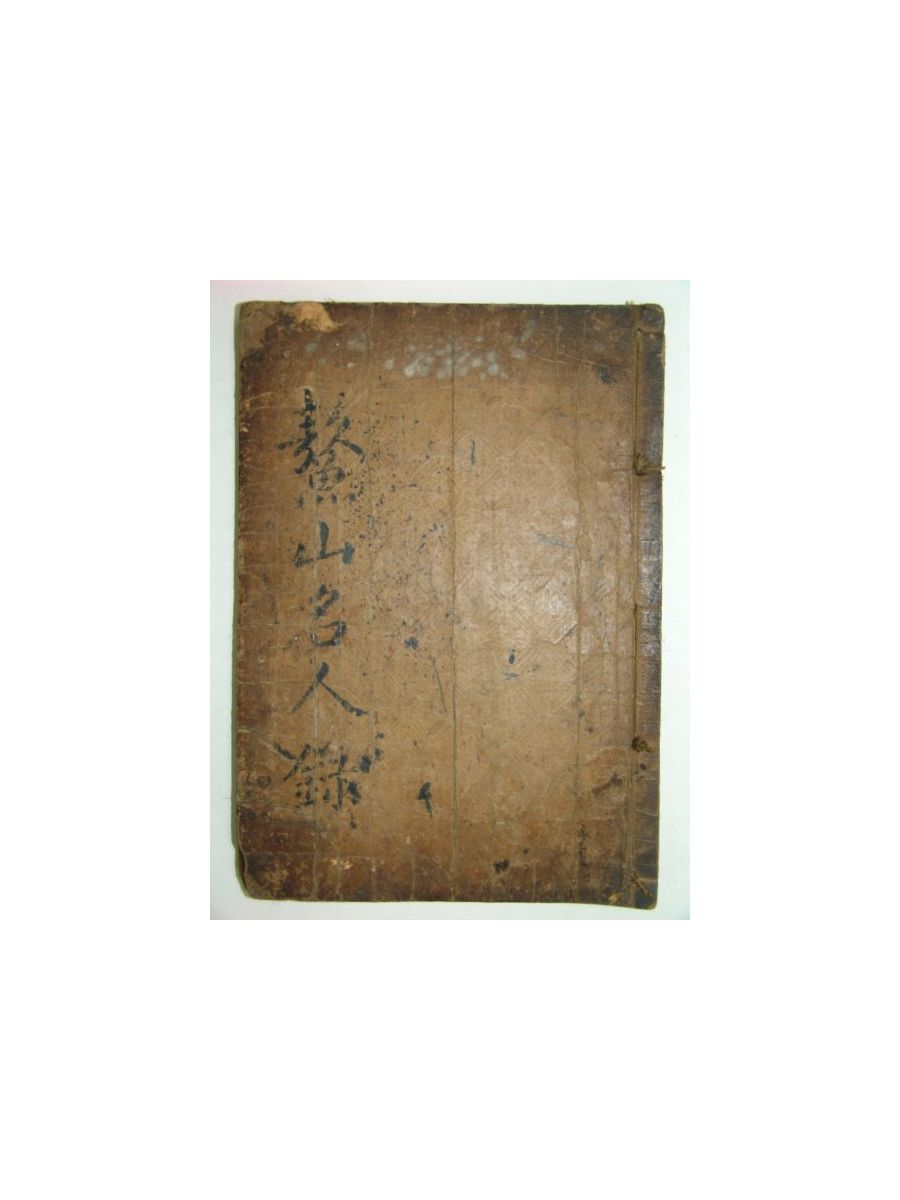 鰲山名人錄